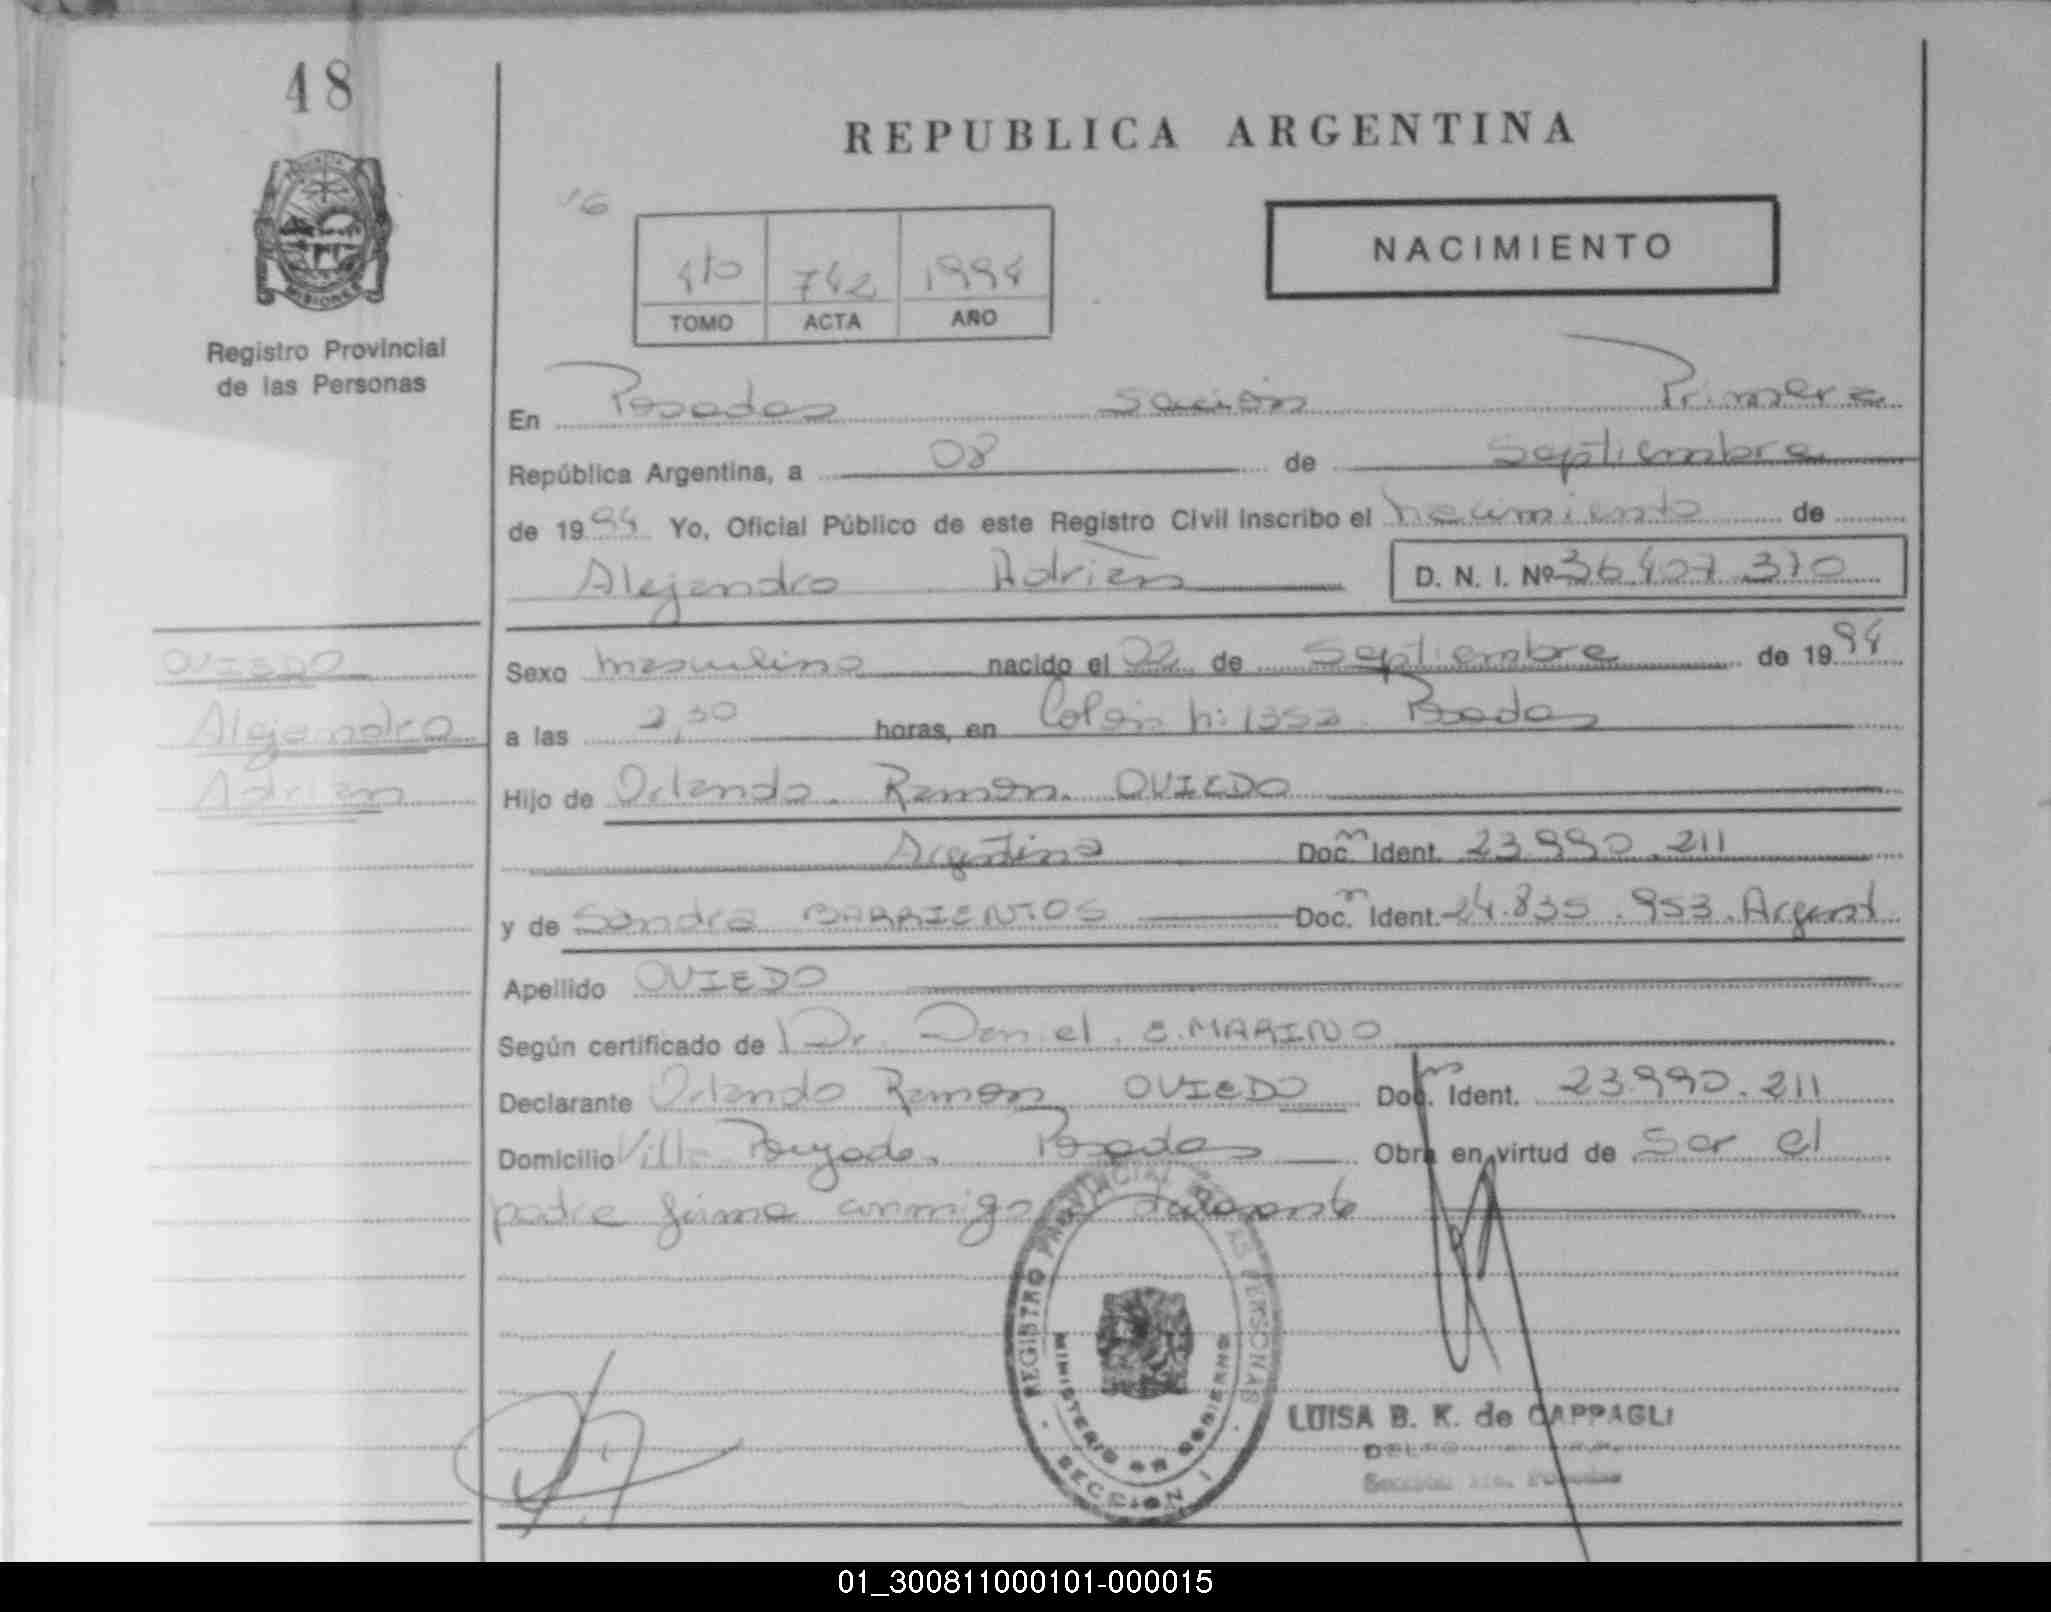 48
REPUBLICA ARGENTINA
MISIONES
Registro Provincial
de las Personas
4to 742 1994
TOMO ACTA AÑO
NACIMIENTO
En Posadas Sección Primera
República Argentina, a 08 de Septiembre
de 1994 Yo, Oficial Público de este Registro Civil inscribo el nacimiento de
Alejandro Adrián D. N. I. Nº 36.407.370
OVIEDO
Alejandro
Adrian
Sexo masculino nacido el 02 de Septiembre de 1994
a las 2,30 horas, en Colón nº 1353 Posadas
Hijo de Orlando Ramon OVIEDO
Argentino Doc. Ident. 23.990.211
y de Sandra BARRIENTOS Doc. Ident. 24.835.953 Argent
Apellido OVIEDO
Según certificado de Dr. Daniel E. MARINO
Declarante Orlando Ramon OVIEDO Doc. Ident. 23.990.211
Domicilio Villa Posadas Obra en virtud de Ser el
padre firma conmigo
REGISTRO PROVINCIAL DE LAS PERSONAS
MINISTERIO DE GOBIERNO
SECCION 1
LUISA B. K. de CAPPAGLI
01_300811000101-000015